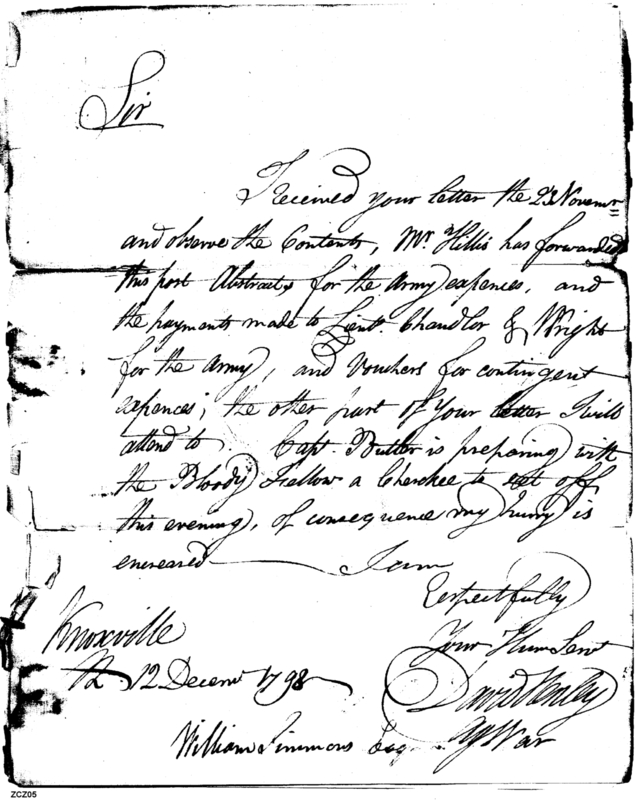 Sir
I Received your letter the 23 Novemr
and observe the Contents, Mr. Hillis has forwarded
this post Abstracts, for the Army expences, and
the payments made to Lieuts. Chandler & Wright
for the Army, and Vouchers for contingent
expences; the other part of your letter I will
attend to Capt. Butler is preparing with
the Bloody Fellow a Cherokee to set off
this evening, of consequence my hurry is
encreased I am
Respectfully
Your Hum Servt
Knoxville
12 Decemr 1798
David Henley
Ag War
William Simmons Esq
ZCZ05